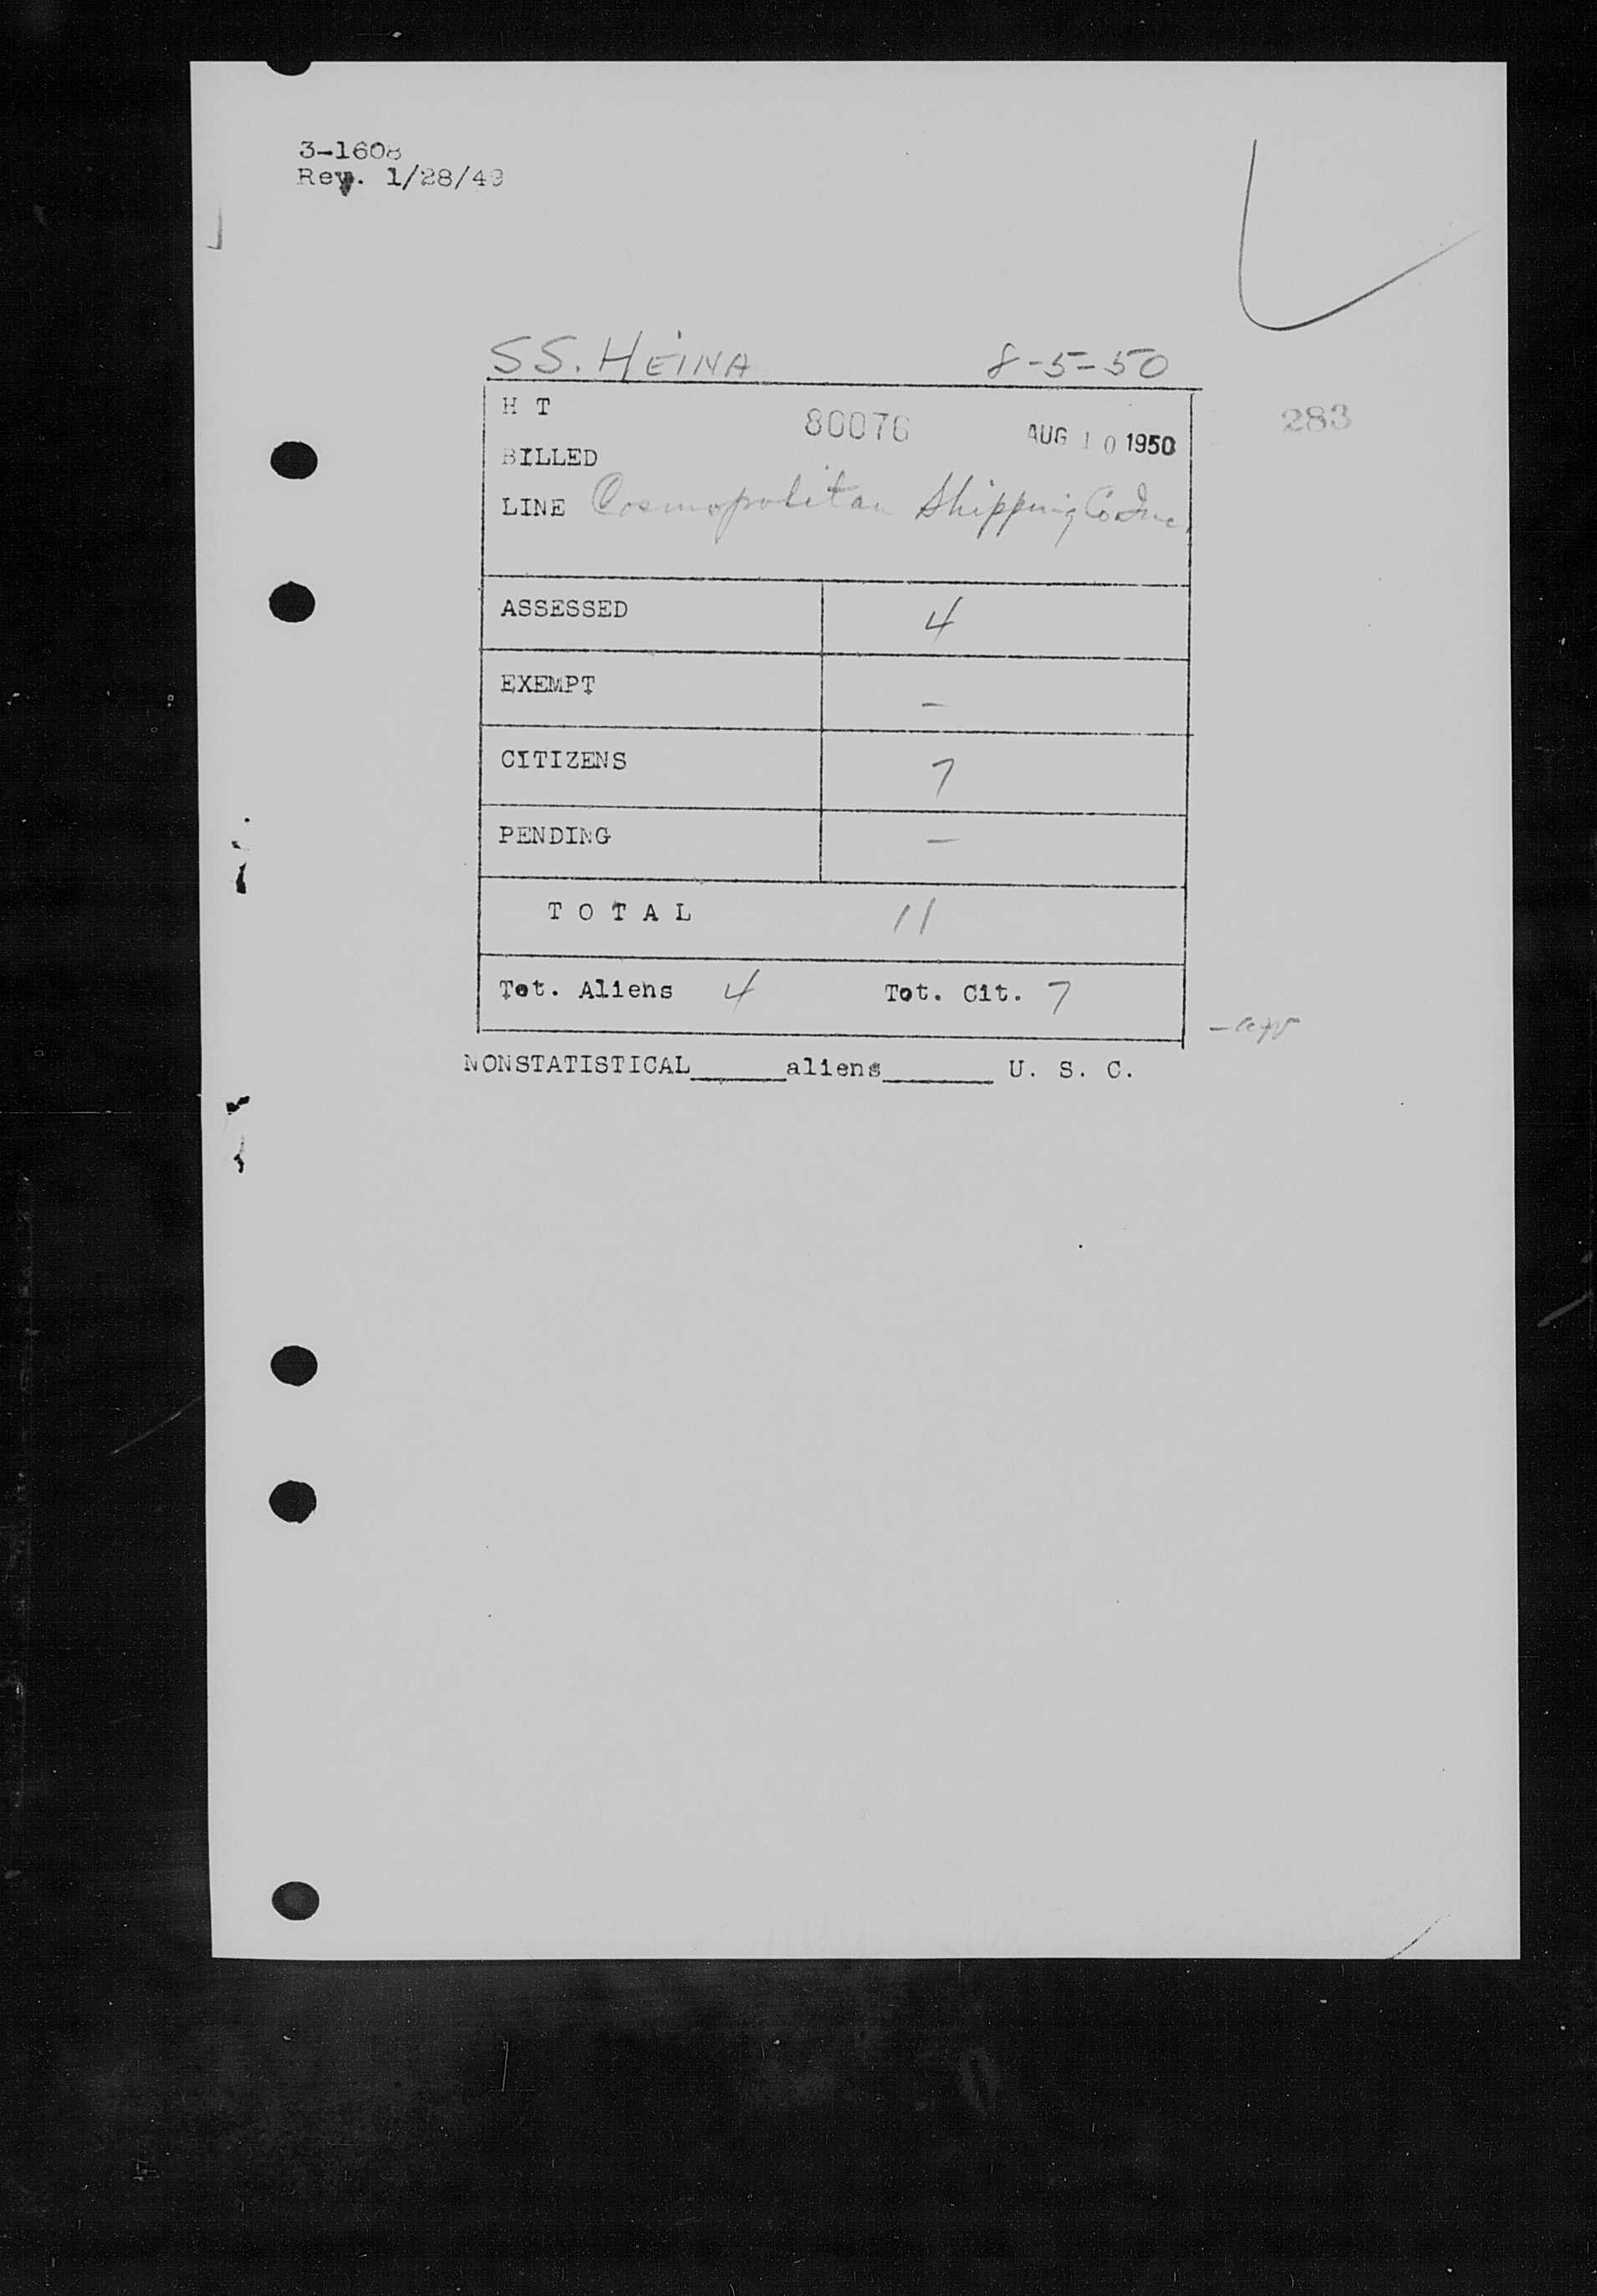 3-1608
Rev. 1/28/49
SS. HEINA 8-5-50
H T 80076 AUG 10 1950 283
BILLED
LINE Cosmopolitan Shipping Co Inc.
ASSESSED 4
EXEMPT -
CITIZENS 7
PENDING -
T O T A L 11
Tot. Aliens 4 Tot. Cit. 7
NONSTATISTICAL______aliens_______ U. S. C.